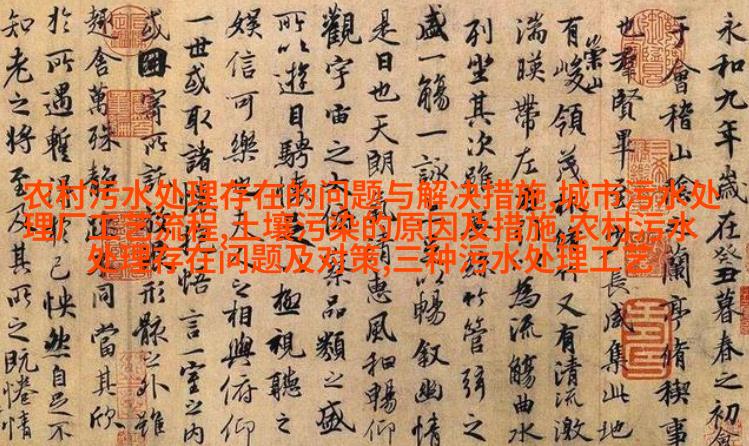 农村污水处理存在的问题与解决措施,城市污水处
理厂工艺流程,土壤污染的原因及措施,农村污水
处理存在问题及对策,三种污水处理工艺
永和九年歲在癸丑暮春之初會
于會稽山蘭亭脩稧事
也羣賢畢至長咸集此地
有崇山峻領茂又有清流激
湍暎帶左為流觴曲水
列坐其次雖竹管弦之
盛一觴一詠以暢叙幽情
是日也天朗惠風和暢仰
觀宇宙之察品類之盛
所以遊目騁極視聽之
娛信可樂之相與俯仰
一世或取諸悟言一室之內
或因寄所形骸之外雖
趣舍萬殊靜同當其欣
於所遇暫己怏然自足不
知老之將至及其所之既惓情